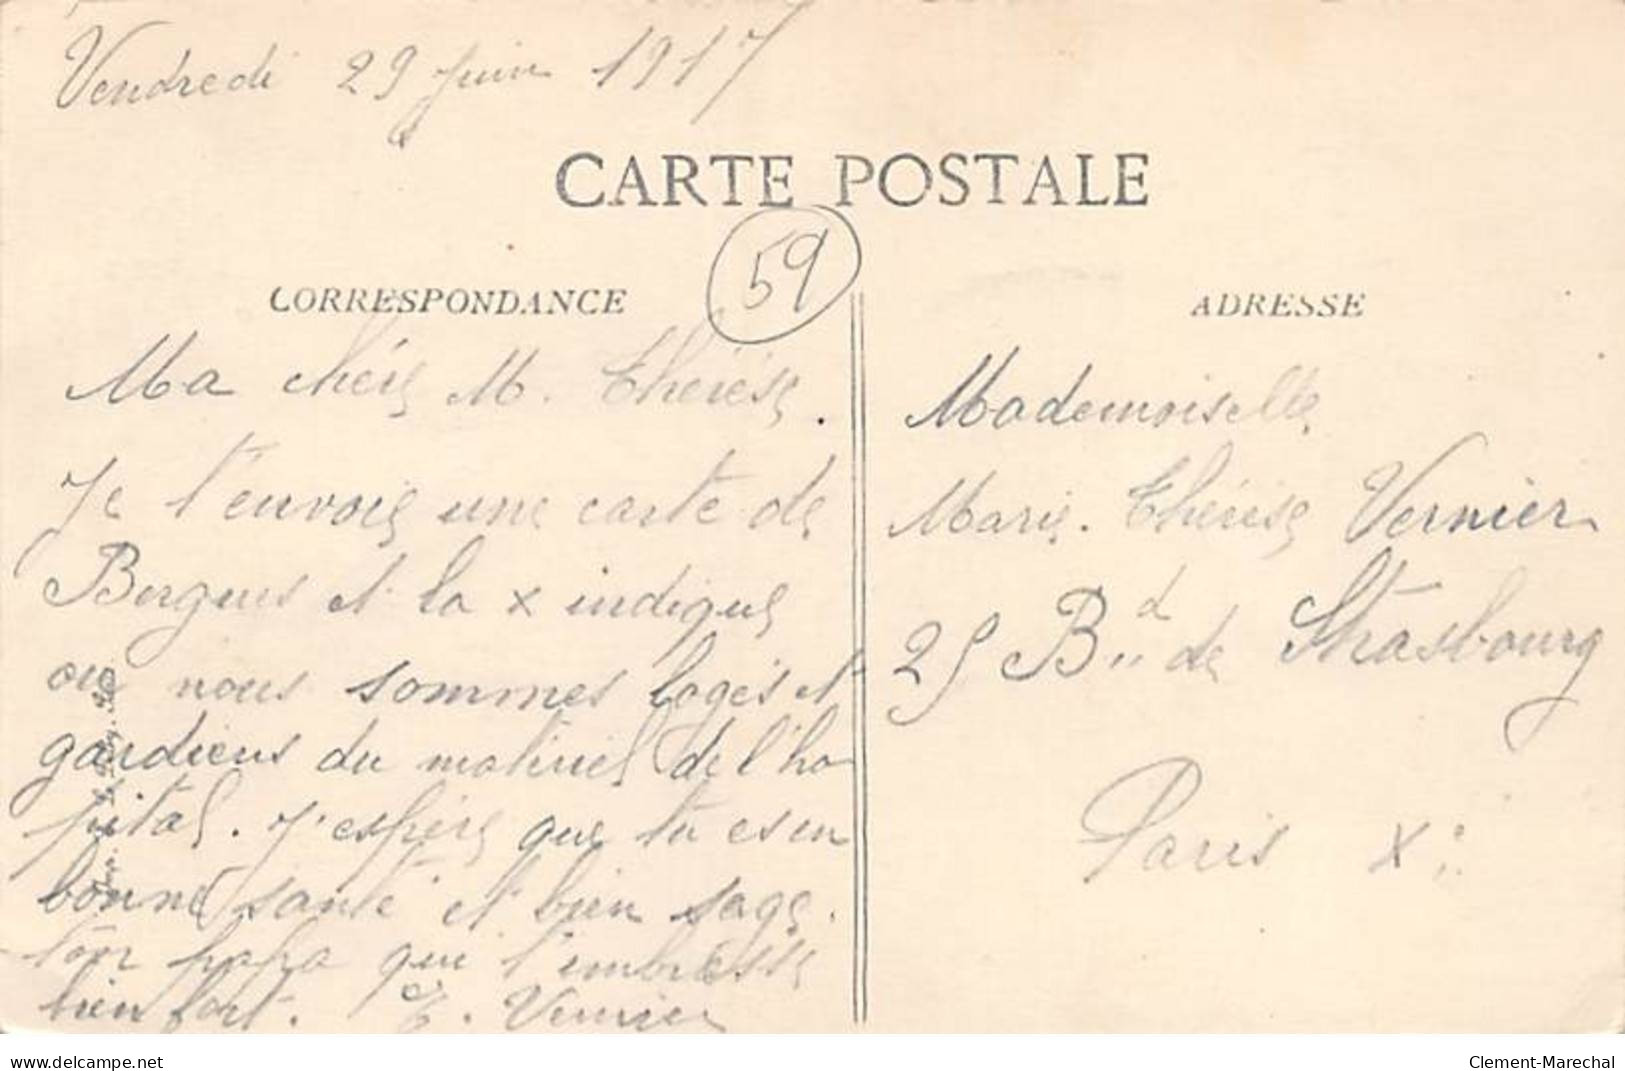 Vendredi 29 juin 1917
CARTE POSTALE
59
CORRESPONDANCE
Ma chère M. Thérèse.
Je t'envoie une carte de
Bergues et la x indique
ou nous sommes logés et
gardiens du matériel de l'ho
pital. J'espère que tu es en
bonne santé et bien sage.
ton papa qui t'embrasse
bien fort. E. Vernier
ADRESSE
Mademoiselle
Marie-Thérèse Vernier
25 Bd de Strasbourg
Paris Xe
www.delcampe.net
Clement-Marechal